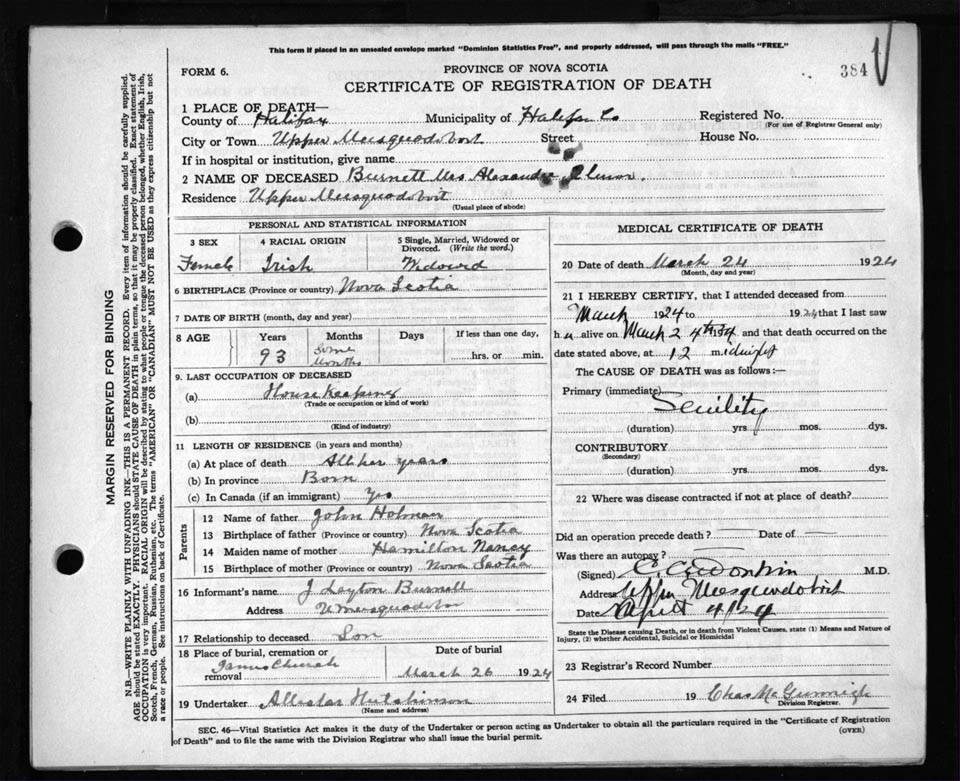 This form if placed in an unsealed envelope marked "Dominion Statistics Free", and properly addressed, will pass through the mails "FREE."
384
FORM 6.
PROVINCE OF NOVA SCOTIA
CERTIFICATE OF REGISTRATION OF DEATH
1 PLACE OF DEATH—
County of Halifax Municipality of Halifax Co Registered No.
(For use of Registrar General only)
City or Town Upper Musquodoboit Street House No.
If in hospital or institution, give name
2 NAME OF DECEASED Burnett Mrs Alexander
Residence Upper Musquodoboit
(Usual place of abode)
PERSONAL AND STATISTICAL INFORMATION
3 SEX 4 RACIAL ORIGIN 5 Single, Married, Widowed or Divorced. (Write the word.)
Female Irish Widowed
6 BIRTHPLACE (Province or country) Nova Scotia
7 DATE OF BIRTH (month, day and year)
8 AGE Years Months Days If less than one day,
93 Some Months hrs. or min.
9. LAST OCCUPATION OF DECEASED
(a) House Keeping
(Trade or occupation or kind of work)
(b)
(Kind of industry)
11 LENGTH OF RESIDENCE (in years and months)
(a) At place of death All her years
(b) In province Born
(c) In Canada (if an immigrant) Yes
Parents
12 Name of father John Holman
13 Birthplace of father (Province or country) Nova Scotia
14 Maiden name of mother Hamilton Nancy
15 Birthplace of mother (Province or country) Nova Scotia
16 Informant's name J Layton Burnett
Address U Musquodoboit
17 Relationship to deceased Son
18 Place of burial, cremation or removal Date of burial
Church March 26 1924
19 Undertaker Hutchinson
(Name and address)
MEDICAL CERTIFICATE OF DEATH
20 Date of death March 24 1924
(Month, day and year)
21 I HEREBY CERTIFY, that I attended deceased from
March 1924 to 1924 that I last saw
h er alive on March 24th 1924 and that death occurred on the
date stated above, at 12 midnight
The CAUSE OF DEATH was as follows:—
Primary (immediate)
Senility
(duration) yrs. mos. dys.
CONTRIBUTORY
(Secondary)
(duration) yrs. mos. dys.
22 Where was disease contracted if not at place of death?
Did an operation precede death? — Date of —
Was there an autopsy? —
(Signed) M.D.
Address Upper Musquodoboit
Date April 4/24
State the Disease causing Death, or in death from Violent Causes, state (1) Means and Nature of Injury, (2) whether Accidental, Suicidal or Homicidal
23 Registrar's Record Number
24 Filed 19 Chas
Division Registrar.
SEC. 46—Vital Statistics Act makes it the duty of the Undertaker or person acting as Undertaker to obtain all the particulars required in the "Certificate of Registration
of Death" and to file the same with the Division Registrar who shall issue the burial permit.
(OVER)
MARGIN RESERVED FOR BINDING
N.B.—WRITE PLAINLY WITH UNFADING INK—THIS IS A PERMANENT RECORD. Every item of information should be carefully supplied.
AGE should be stated EXACTLY. PHYSICIANS should STATE CAUSE OF DEATH in plain terms, so that it may be properly classified. Exact statement of
OCCUPATION is very important. RACIAL ORIGIN will be described by stating to what people or tongue the deceased person belonged, whether English, Irish,
Scotch, French, German, Russian, Ruthenian, etc. The terms "AMERICAN" or "CANADIAN" MUST NOT BE USED as they express citizenship but not
a race or people. See instructions on back of Certificate.